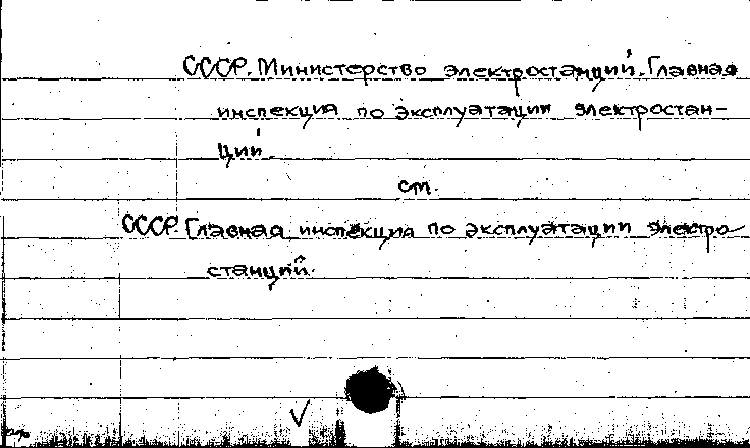 СССР. Министерство электростанций. Главная
инспекция по эксплуатации электростан-
ций.
см.
СССР. Главная инспекция по эксплуатации электро-
станций.